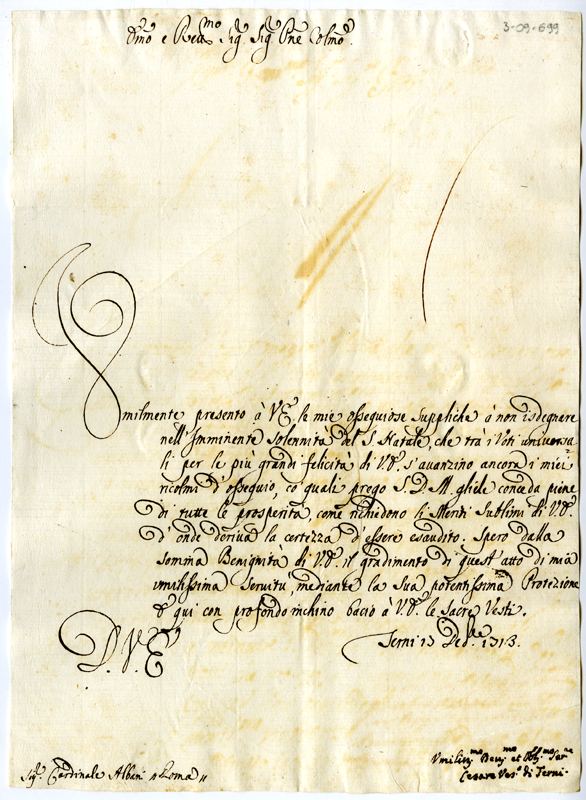 3-09-699
Emo e Revmo Sig.r Sig.r Pne Colmo
Vmilmente presento à V.E. le mie ossequiose suppliche à non isdegnare
nell'Imminente Solennità del S. Natale, che trà i Voti universa-
li per le più grandi felicità di V.E. s'avanzino ancora i miei
ricolmi d'ossequio, co quali prego S.D.M. gliele conceda piene
di tutte le prosperità, come richiedono li Meriti Sublimi di V.E.
d'onde deriva la certezza d'essere esaudito. Spero dalla
somma Benignità di V.E. il gradimento di quest'atto di mia
umilissima servitù, mediante la sua potentissima Protezione
e qui con profondo inchino bacio à V.E. le Sacre Vesti.
D.V.E.
Terni 13 Dec.bre 1713.
Vmiliss.mo Dev.mo et Obl.mo Ser.re
Sig.r Cardinale Albani Roma
Cesare Ves.o di Terni.